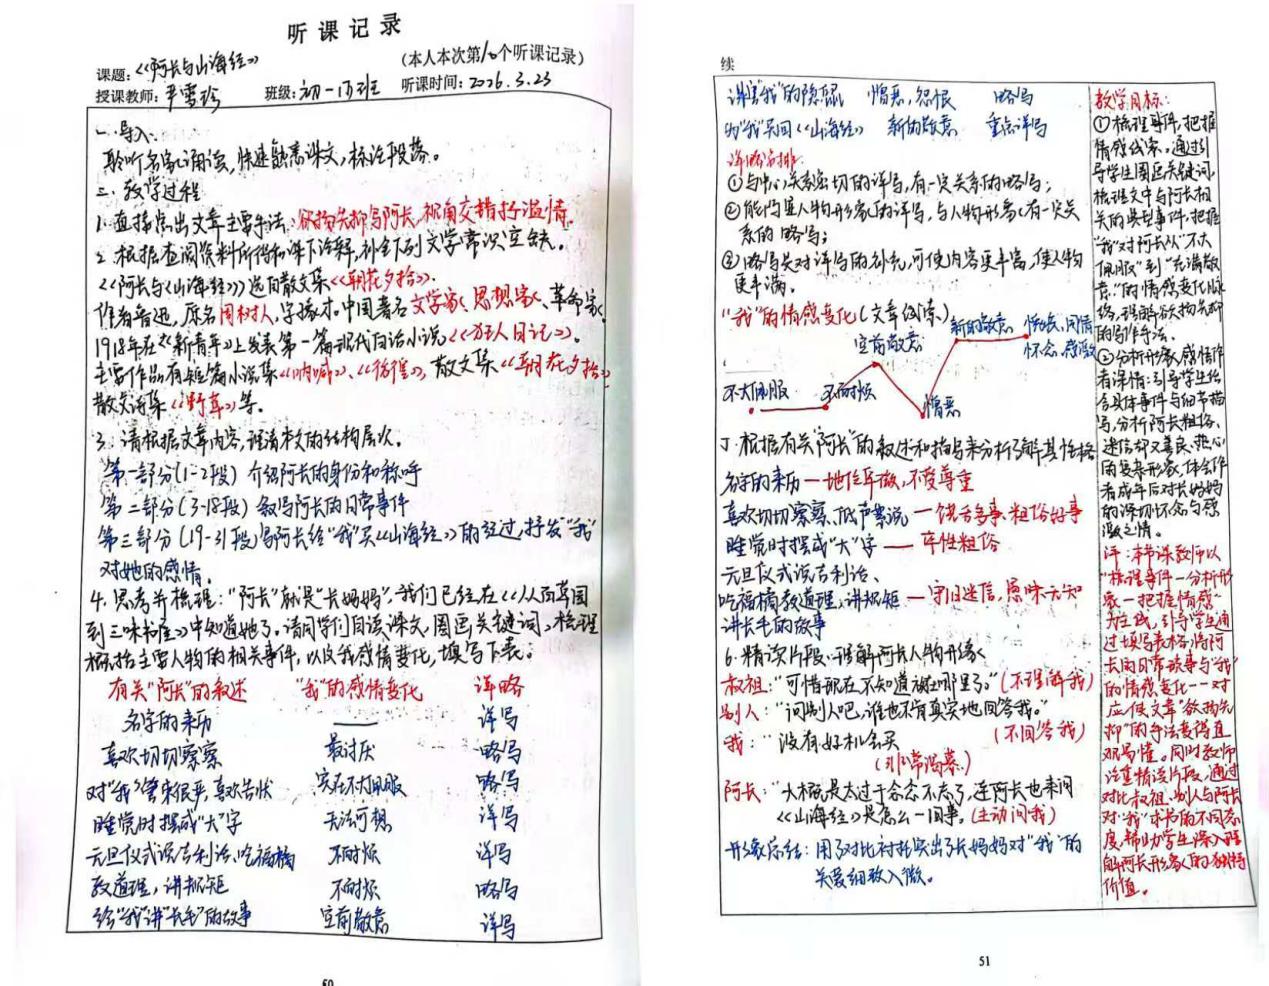 听课记录
(本人本次第10个听课记录)
课题:《阿长与山海经》
授课教师:尹雪珍 班级:初一17班 听课时间:2026.3.23
一.导入
聆听名家诵读,快速熟悉课文,标注段落。
二.教学过程
1.直接点出文章主要手法:欲扬先抑写阿长,视角交错抒温情。
2.根据查阅资料所得和课下注释,补全下列文学常识空缺。
《阿长与《山海经》》选自散文集《朝花夕拾》.
作者鲁迅,原名周树人,字豫才.中国著名文学家、思想家、革命家.
1918年在《新青年》上发表第一篇现代白话小说《狂人日记》。
主要作品有短篇小说集《呐喊》、《彷徨》,散文集《朝花夕拾》
散文诗集《野草》等.
3.请根据文章内容,理清本文的结构层次.
第一部分(1-2段) 介绍阿长的身份和称呼
第二部分(3-18段) 叙写阿长的日常事件
第三部分(19-31段)写阿长给"我"买《山海经》的经过,抒发"我"
对她的感情.
4.思考并梳理:"阿长"就是"长妈妈",我们已经在《从百草园
到三味书屋》中知道她了。请同学们自读课文,圈画关键词,梳理
概括主要人物的相关事件,以及我感情变化,填写下表。
有关"阿长"的叙述 "我"的感情变化 详略
名字的来历 —— 详写
喜欢切切察察 最讨厌 略写
对"我"管束很严,喜欢告状 实在不大佩服 略写
睡觉时摆成"大"字 无法可想 详写
元旦仪式说吉利话,吃福橘 不耐烦 详写
教道理,讲规矩 不耐烦 略写
给"我"讲"长毛"的故事 空前敬意 详写
续
谋害"我"的隐鼠 憎恶,怨恨 略写
为"我"买回《山海经》 新的敬意 重点详写
详略安排
①与中心关系密切的详写,有一定关系的略写;
②能凸显人物形象的详写,与人物形象有一定关
系的略写;
③略写是对详写的补充,可使内容更丰富,使人物
更丰满.
"我"的情感变化(文章线索)
空前敬意
新的敬意
怀念,感激
不大佩服
不耐烦
憎恶
5.根据有关"阿长"的叙述和描写来分析了解其性格
名字的来历—地位卑微,不受尊重
喜欢切切察察、低声絮说—饶舌多事、粗俗好事
睡觉时摆成"大"字——率性粗俗
元旦仪式说吉利话、
吃福橘教道理,讲规矩—守旧迷信,愚昧无知
讲长毛的故事
6.精读片段,理解阿长人物形象
叔祖:"可惜现在不知道放在哪里了。"(不理解我)
别人:"问别人吧,谁也不肯真实地回答我。"
(不回答我)
我:"没有好机会买
(非常渴慕)
阿长:"大概是太过于念念不忘了,连阿长也来问
《山海经》是怎么一回事.(主动问我)
形象总结:用了对比衬托突出了长妈妈对"我"的
关爱细致入微。
教学目标:
①梳理事件,把握
情感线索.通过引
导学生圈画关键词,
梳理文中与阿长相
关的典型事件,把握
"我"对阿长从"不大
佩服"到"充满敬
意"的情感变化脉
络,理解欲扬先抑
的写作手法.
②分析形象,感悟作
者深情:引导学生结
合具体事件与细节描
写,分析阿长粗俗、
迷信却又善良、热心
的复杂形象,体会作
者成年后对长妈妈
的深切怀念与感
激之情.
评:本节课教师以
"梳理事件—分析形
象—把握情感"
为主线,引导学生通
过填写表格,将阿
长的日常琐事与"我"
的情感变化一一对
应,使文章"欲扬先
抑"的手法变得直
观易懂。同时教师
注重精读片段,通过
对比叔祖、别人与阿长
对"我"求书的不同态
度,帮助学生深入理
解阿长形象的独特
价值。
51